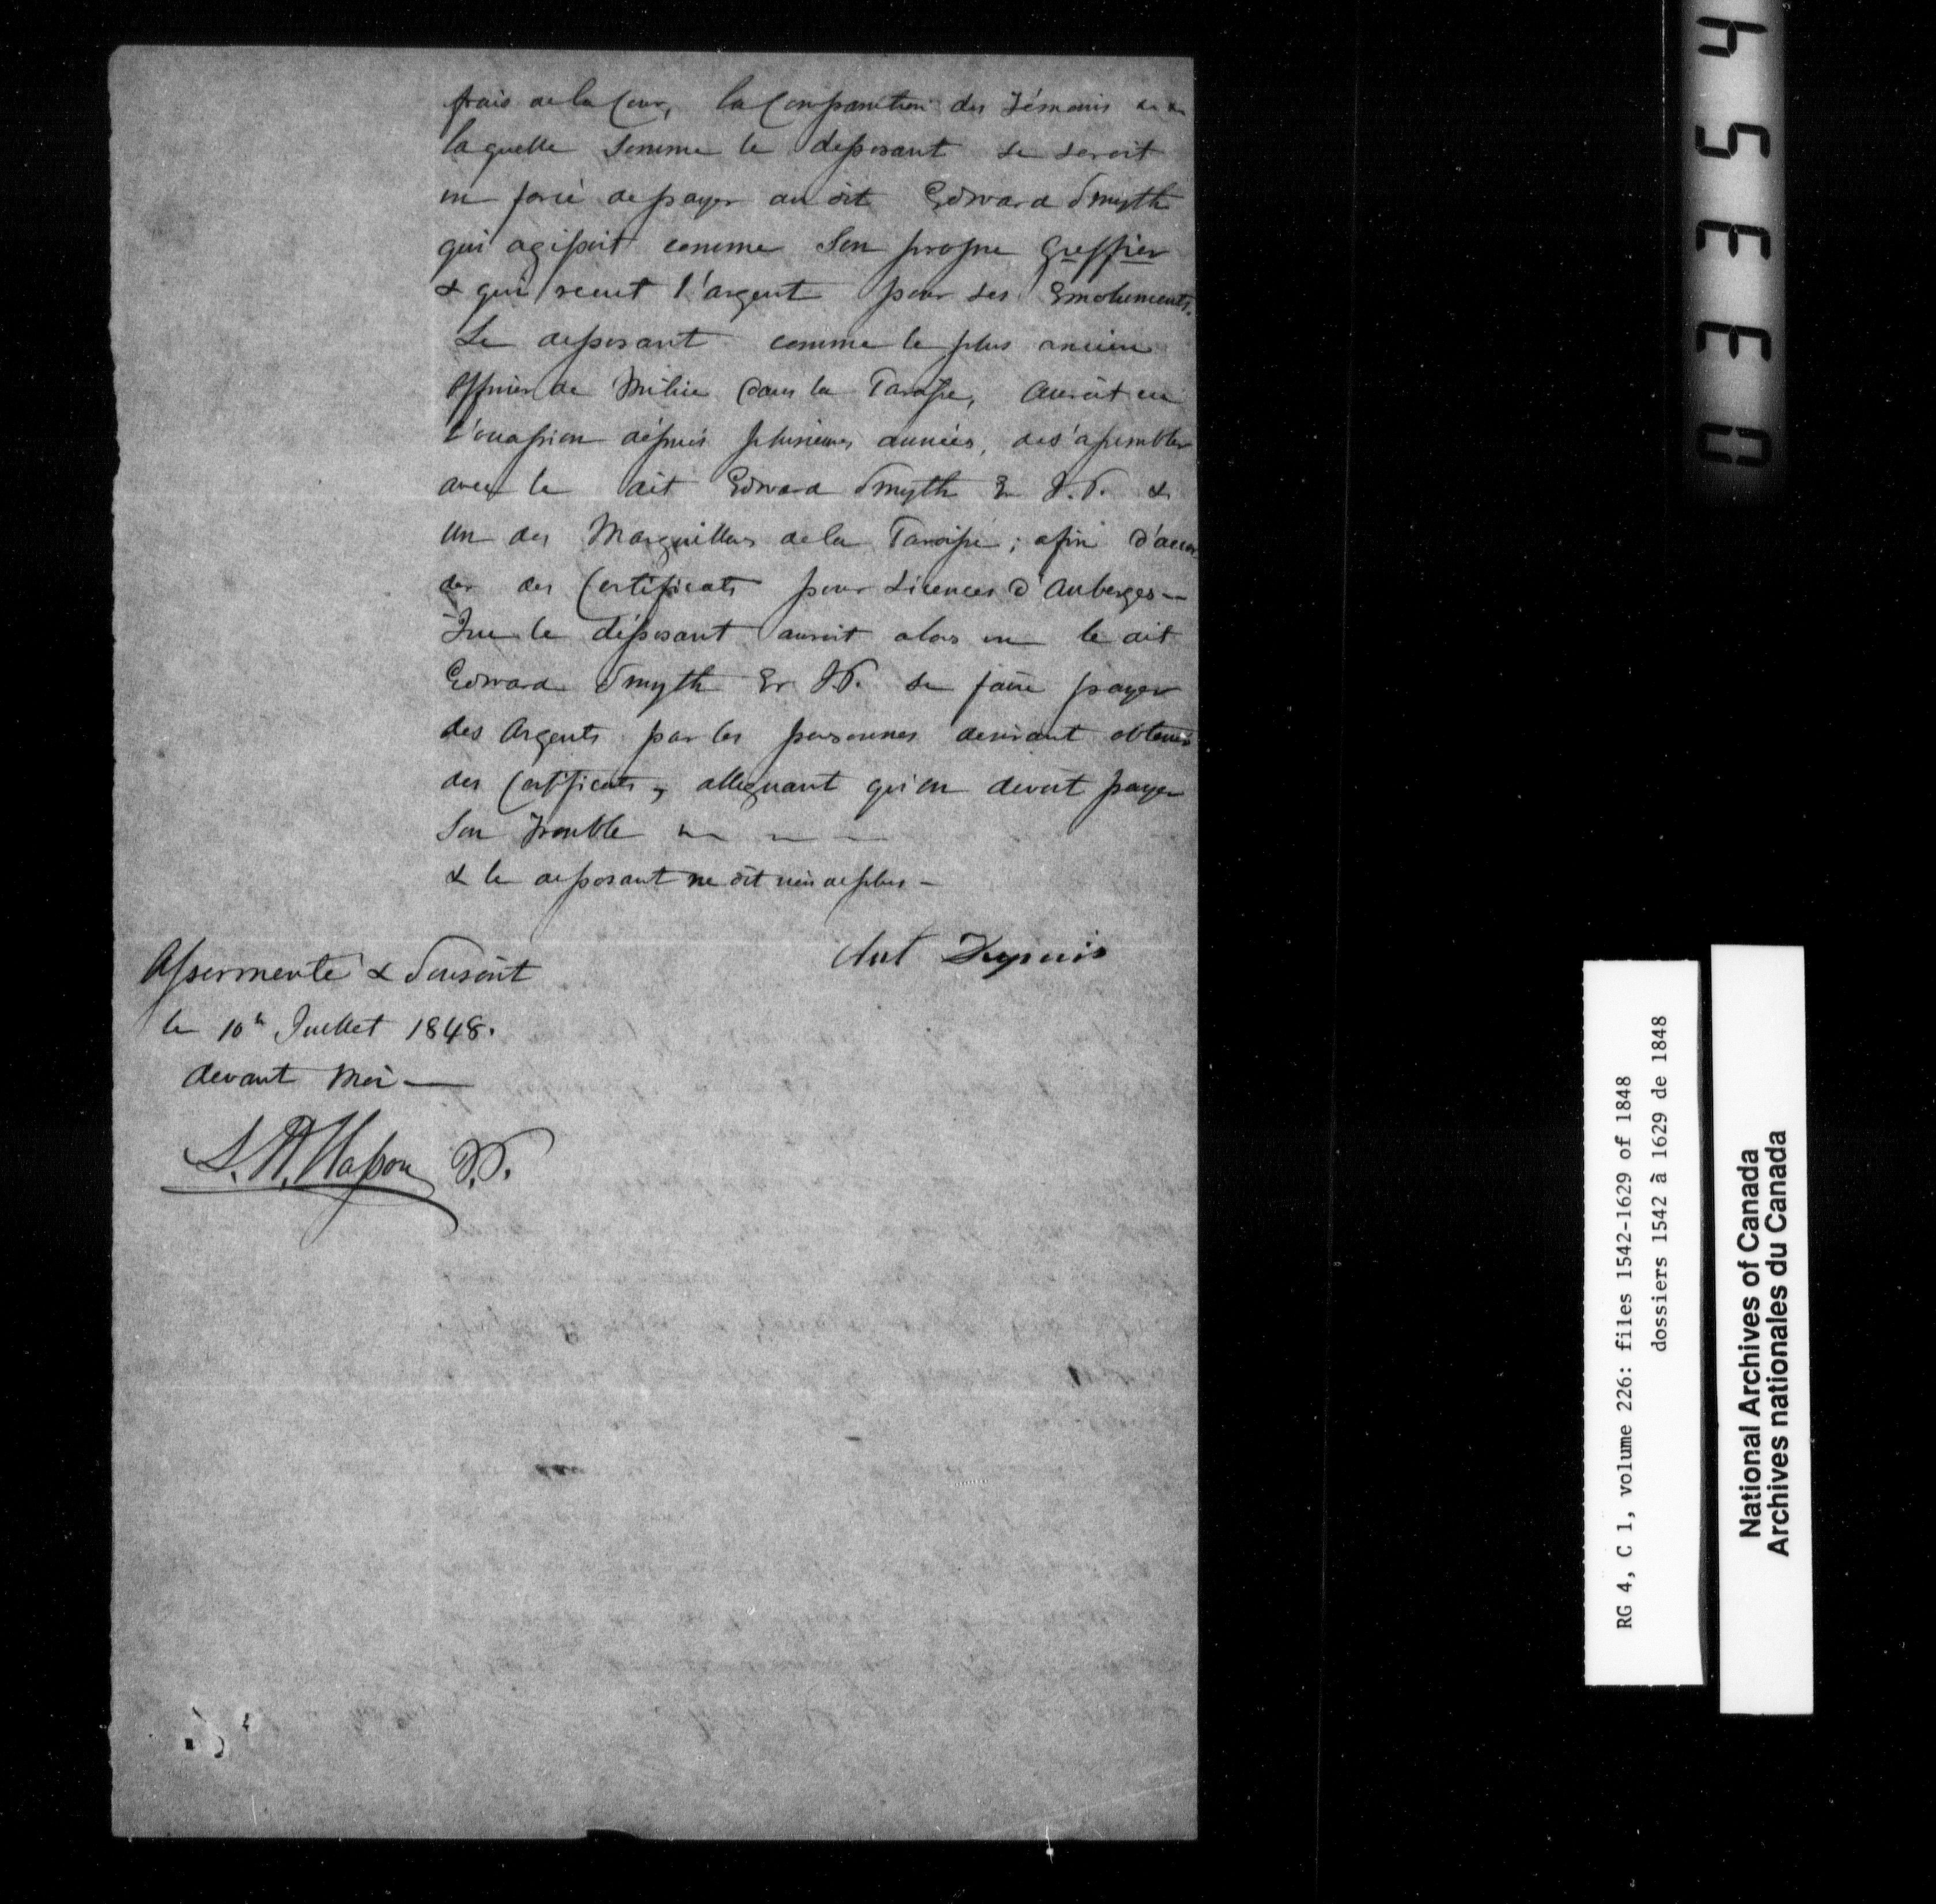 frais de la Cour, la Comparution des Témoins &c &c
laquelle Somme le deposant se seroit
vu forcé de payer au dit Edward Smyth
qui agissoit comme Son propre Greffier
& qui recut l'argent pour ses Emoluments.
Le deposant comme le plus ancien
Officier de Milice dans la Paroisse, auroit eu
l'occassion dépuis plusieures années, de s'assembler
avec le dit Edward Smyth Er J.P. &
un des Marguilliers de la Paroisse; afin d'accor
der des Certificats pour Licences d'Auberges —
Que le déposant auroit alors vu le dit
Edward Smyth Er J.P. se faire payer
des Argents par les personnes desirant obtenir
des Certificats, alleguant qu'on devoit payer
Son Trouble — — —
& le deposant ne dit rien de plus —
Ant Dupuis
Assermenté & Souscrit
le 10e Juillet 1848.
devant Moi —
Masson J.P.
0 3 3 5 4
RG 4, C 1, volume 226: files 1542-1629 of 1848
dossiers 1542 à 1629 de 1848
National Archives of Canada
Archives nationales du Canada